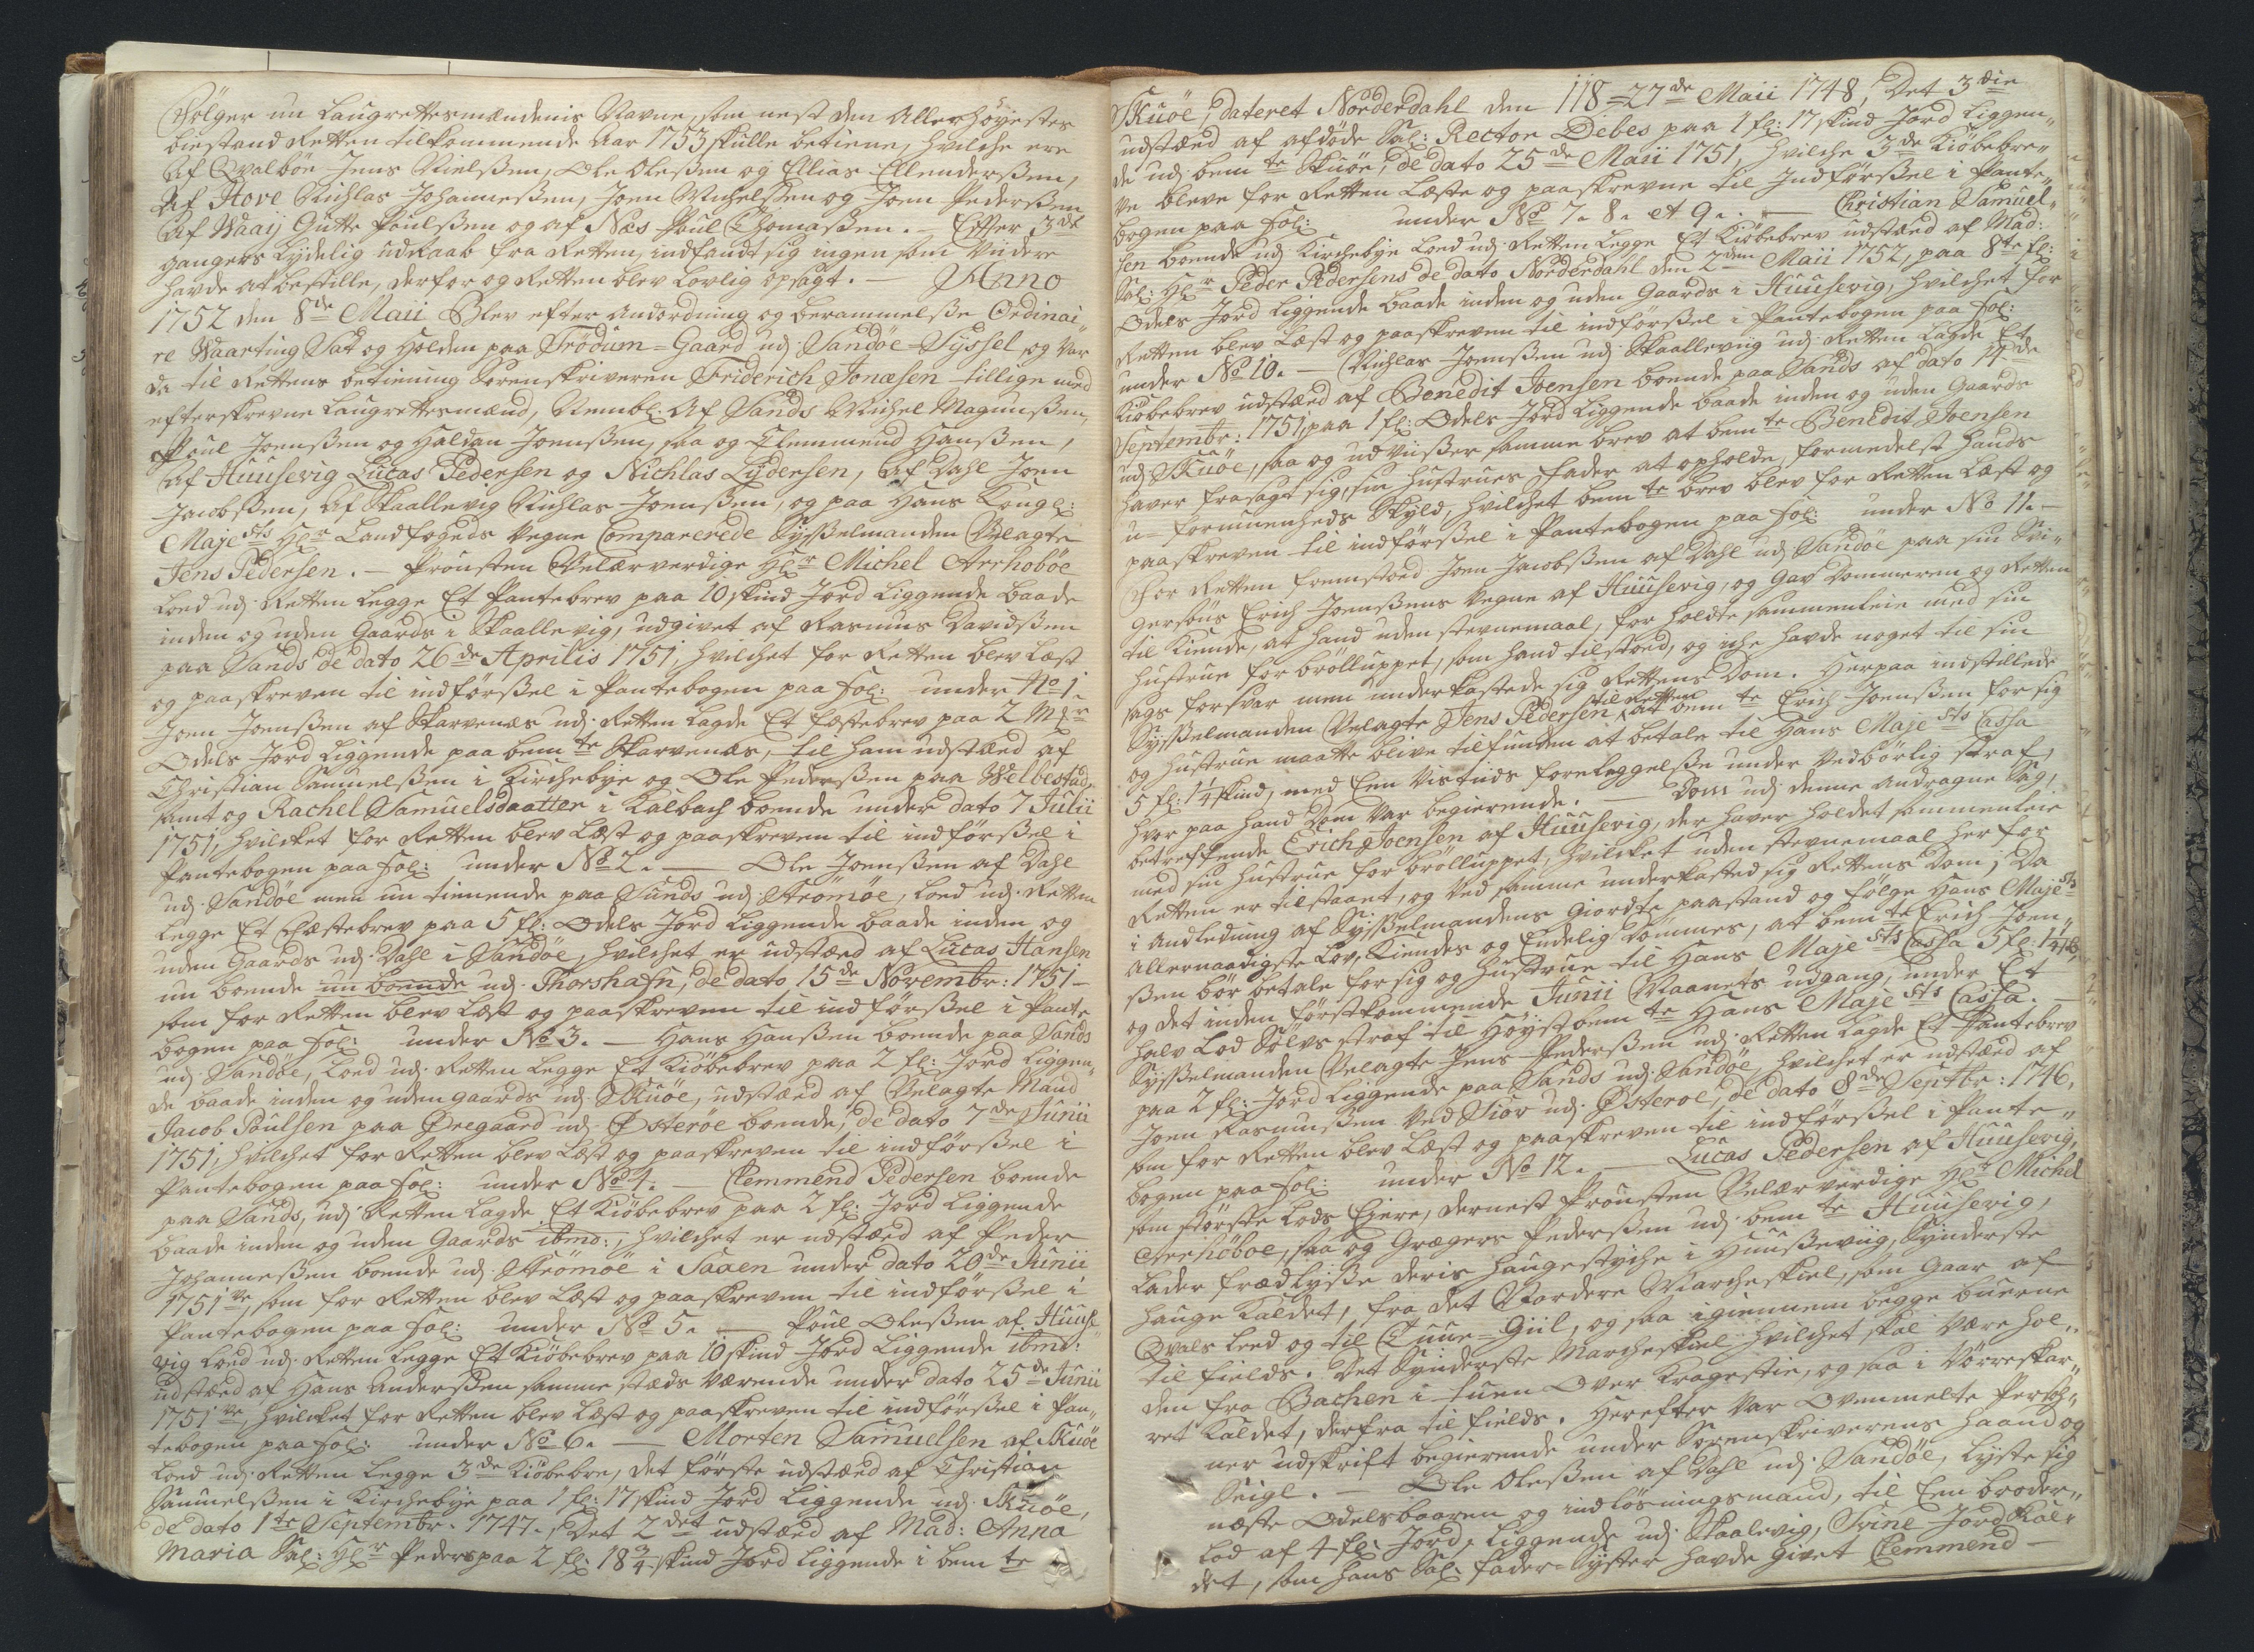 Fölger nu Laugrettesmændenis Navne, som nest den Allerhöyestes
biestand Retten tilkommende Aar 1753 skulle betiene, hvilche ere
Af Qvalböe Jens Nielsßen, Ole Olesßen og Ellias Ellendersßen,
Af Hove Nichlas Johannesßen, Joen Michelsßen og Joen Pedersßen
Af Waaÿ Gutte Poulsßen og af Næs Poul Thomasßen. – Efter 3de
gangers lydelig udraab fra Retten, indfandt sig ingen som viidere
hafde at bestille, derfor og Retten blev lovlig opsagt. – Anno
1752 den 8de Maii Blev efter Andordning og berammelsße Ordinai„
re Waarting Sat og Holden paa Trödum-Gaard udj Sandöe-Syssel, og Var
da til Rettens betiening Sorenskriveren Friderich Jonæsen tillige med
efterskrevne Laugrettesmænd, Nembl: Af Sands Michel Magnusßen,
Poul Joensßen og Haldan Joensßen, saa og Clemmend Hansßen,
Af Huusevig Lucas Pedersen og Nichlas Lydersen, Af Dahl Joen
Jacobsßen, Af Skaallevig Nichlas Joensßen, og paa Hans Kongl:
MajesTs Hr Landfogeds Vegne Comparerede Sysßelmanden Velagte
Jens Pedersen. – Prousten Velærverdige Hr Michel Arrhoböe
Loed udj Retten Legge Et Pantebrev paa 10 skind Jord Liggende baade
inden og uden Gaards i Skaallevig, udgivet af Rasmus Davidsßen
paa Sands de dato 26de Aprilis 1751, hvilchet for Retten blev Læst
og paaskreven til indförsßel i Pantebogen paa fol: under No 1.
Joen Joensßen af Skarvenæs udj Retten Lagde Et Festebrev paa 2 Mk
Odels Jord Liggende paa bemte Skarvenæs, til ham udstæd af
Christian Samuelsßen i Kirchebÿe og Ole Pedersßen paa Welbestad,
samt og Rachel Samuelsdaatter i Kalbach boende under dato 7 Julii
1751, hvilcket for Retten blev Læst og paaskreven til indförsßel i
Pantebogen paa fol: under No 2. — Ole Joensßen af Dahl
udj Sandöe men nu tienende paa Sunds udj Strömöe, loed udj Retten
Legge Et Skiötebrev paa 5 fl: Odels Jord Liggende baade inden og
uden Gaards udj Dahl i Sandöe, hvilchet er udstæd af Lucas Hansen
nu boende nu boende udj Thorshafn, de dato 15de Novembr: 1751 –
som for Retten blev Læst og paaskreven til indförsßel i Pante
bogen paa fol: under No 3. – Hans Hansßen boende paa Sands
udj Sandöe, loed udj Retten Legge Et Kiöbebrev paa 2 fl: Jord Liggen„
de baade inden og uden gaards udj Skuöe, udstæd af Velagte Mand
Jacob Poulsen paa Öregaard udj Österöe boende, de dato 7de Junii
1751, hvilchet for Retten blev Læst og paaskreven til indförsßel i
Pantebogen paa fol: under No 4. – Clemmend Pedersen boende
paa Sands, udj Retten Lagde Et Kiöbebrev paa 2 fl: Jord Liggende
baade inden og uden Gaards ibmd:, hvilchet er udstæd af Peder
Johannesßen boende udj Strömöe i Saxen under dato 20de Junii
1751ve, som for Retten blev Læst og paaskreven til indförsßel i
Pantebogen paa fol: under No 5. — Poul Olesßen af Huuse„
vig loed udj Retten Legge Et Kiöbebrev paa 10 skind Jord Liggende ibmd:
udstæd af Hans Andersßen samme stæds værende under dato 25de Junii
1751ve, hvilcket for Retten blev Læst og paaskreven til indförsßel i Pan„
tebogen paa fol: under No 6. — Morten Samuelsen af Skuöe
Loed udj Retten Legge 3de Kiöbebre, det förste udstæd af Christian
Samuelsßen i Kirchebÿe paa 1 fl: 17 skind Jord Liggende udj Skuöe,
de dato 1te Septembr. 1747. Det 2det udstæd af Mad: Anna
Maria Sal: Hr Peders paa 2 fl: 18 3/4 skind Jord Liggende i bemte
Skuöe, dateret Norderdahl den 27de Maii 1748, Det 3die
118
udstæd af afdöde Sal: Rector Debes paa 1 fl: 17 skind Jord Liggen„
de udj bemte Skuöe, de dato 25de Maii 1751, hvilche 3de Kiöbebre„
ve bleve for Retten Læste og paaskrevne til Indförsßel i Pante„
bogen paa fol: under No 7. 8. et 9. — Christian Samuel„
sen boende udj Kirchebÿe loed udj Retten Legge Et Kiöbebrev udstæd af Mad:
Sal: Hr Peder Pedersens de dato Norderdahl den 2den Maii 1752, paa 8te fl:
Odels Jord Liggende baade inden og uden Gaards i Huusevig, hvilchet for
Retten blev Læst og paaskreven til indförsßel i Pantebogen paa fol:
under No 10. — Nichlas Joensßen udj Skaallevig udj Retten Lagde Et
Kiöbebrev udstæd af Benedit Joensen boende paa Sands af dato 14de
Septembr: 1751, paa 1 fl: Odels Jord Liggende baade inden og uden Gaards
udj Skuöe, saa og udviisßer samme brev at bemte Benedit Joensen
haver frasagt sig, sin hustrues fader at opholde, formedelst hands
u-formuenheds Skyld, hvilchet bemte brev blev for Retten Læst og
paaskreven til indförsßel i Pantebogen paa fol: under No 11. –
For Retten fremstoed Joen Jacobsßen af Dahl udj Sandöe paa sin Svi„
gersöns Erich Joensßens Vegne af Huusevig, og gav Dommeren og Retten
til Kiende, at hand uden stevnemaal, for holdte sammenleie med sin
hustrue for brölluppet, som hand tilstoed, og iche havde noget til sin
sags forsvar men underkastede sig Rettens Dom. Herpaa indstillede
Sysßelmanden Velagte Jens Pedersen til Retten at bemte Erich Joensßen for sig
og hustrue maatte blive tilfunden at betale til Hans MajesTs Cassa
5 fl: 1 1/4 skind, med Een vis tiids foreleggelsße under Vedbörlig straf,
hvor paa hand Dom Var begierende. — Dom udj denne Andragne Sag,
betreffende Erich Joensen af Huusevig, der haver holdet sammenleie
med sin hustrue for brölluppet, hvilcket uden stevnemaal her for
Retten er tilstaaet, og ved samme underkasted sig Rettens Dom; Da
i Andledning af Sysßelmandens Giordte paastand og fölge Hans MajesTs
Allernaadigste Lov, Kiendes og Endelig Dömmes, at bemte Erich Joen„
sßen bör betale for sig og hustrue til Hans MajesTs Cassa 5 fl: 1 1/4 sk,
og det inden förstkommende Junii Maanets udgang, under Et
halv Lod Sölvs straf til Höystbemte Hans MajesTs Cassa. –
Sysßelmanden Velagte Jens Pedersßen udj Retten Lagde Et Pantebrev
paa 2 fl: Jord Liggende paa Sands udj Sandöe, hvilchet er udstæd af
Joen Rasmusßen ved Siöv udj Österöe, de dato 8de Septbr: 1746,
som for Retten blev Læst og paaskreven til indförsßel i Pante„
bogen paa fol: under No 12. — Lucas Pedersen af Huusevig,
som störste Lods Ejere, dernest Prousten Velærverdige Hr Michel
Arrhöboe, saa og Grægers Pedersßen udj bemte Huusevig,
Lader fredlyse deris haugestyche i Huusßeviig, Synderste
Hauge Kaldet, fra det Nordere Marcheskiel, som Gaar af
Qvals Leed og til Tuue-Giil, og saa igiennem begge buerne
til fields. Det Synderste Marcheskiel hvilchet skal være Hol„
den fra Bachen i tuen over Kragestie, og saa i Vörreskar„
ret Kaldet, derfra til fields. Herefter Var Ovenmelte Persoh„
ner udskrift begierende under Sorenskriverens haand og
Seigl. — Ole Olesßen af Dahl udj Sandöe, lyste sig
næste Odelsbaaren og indlösningsmand, til Een broder„
lod af 4 fl: Jord, Liggende udj Skaalevig, Svine Jord Kal„
det, som hans Sal: fader-Syster havde givet Clemmend –